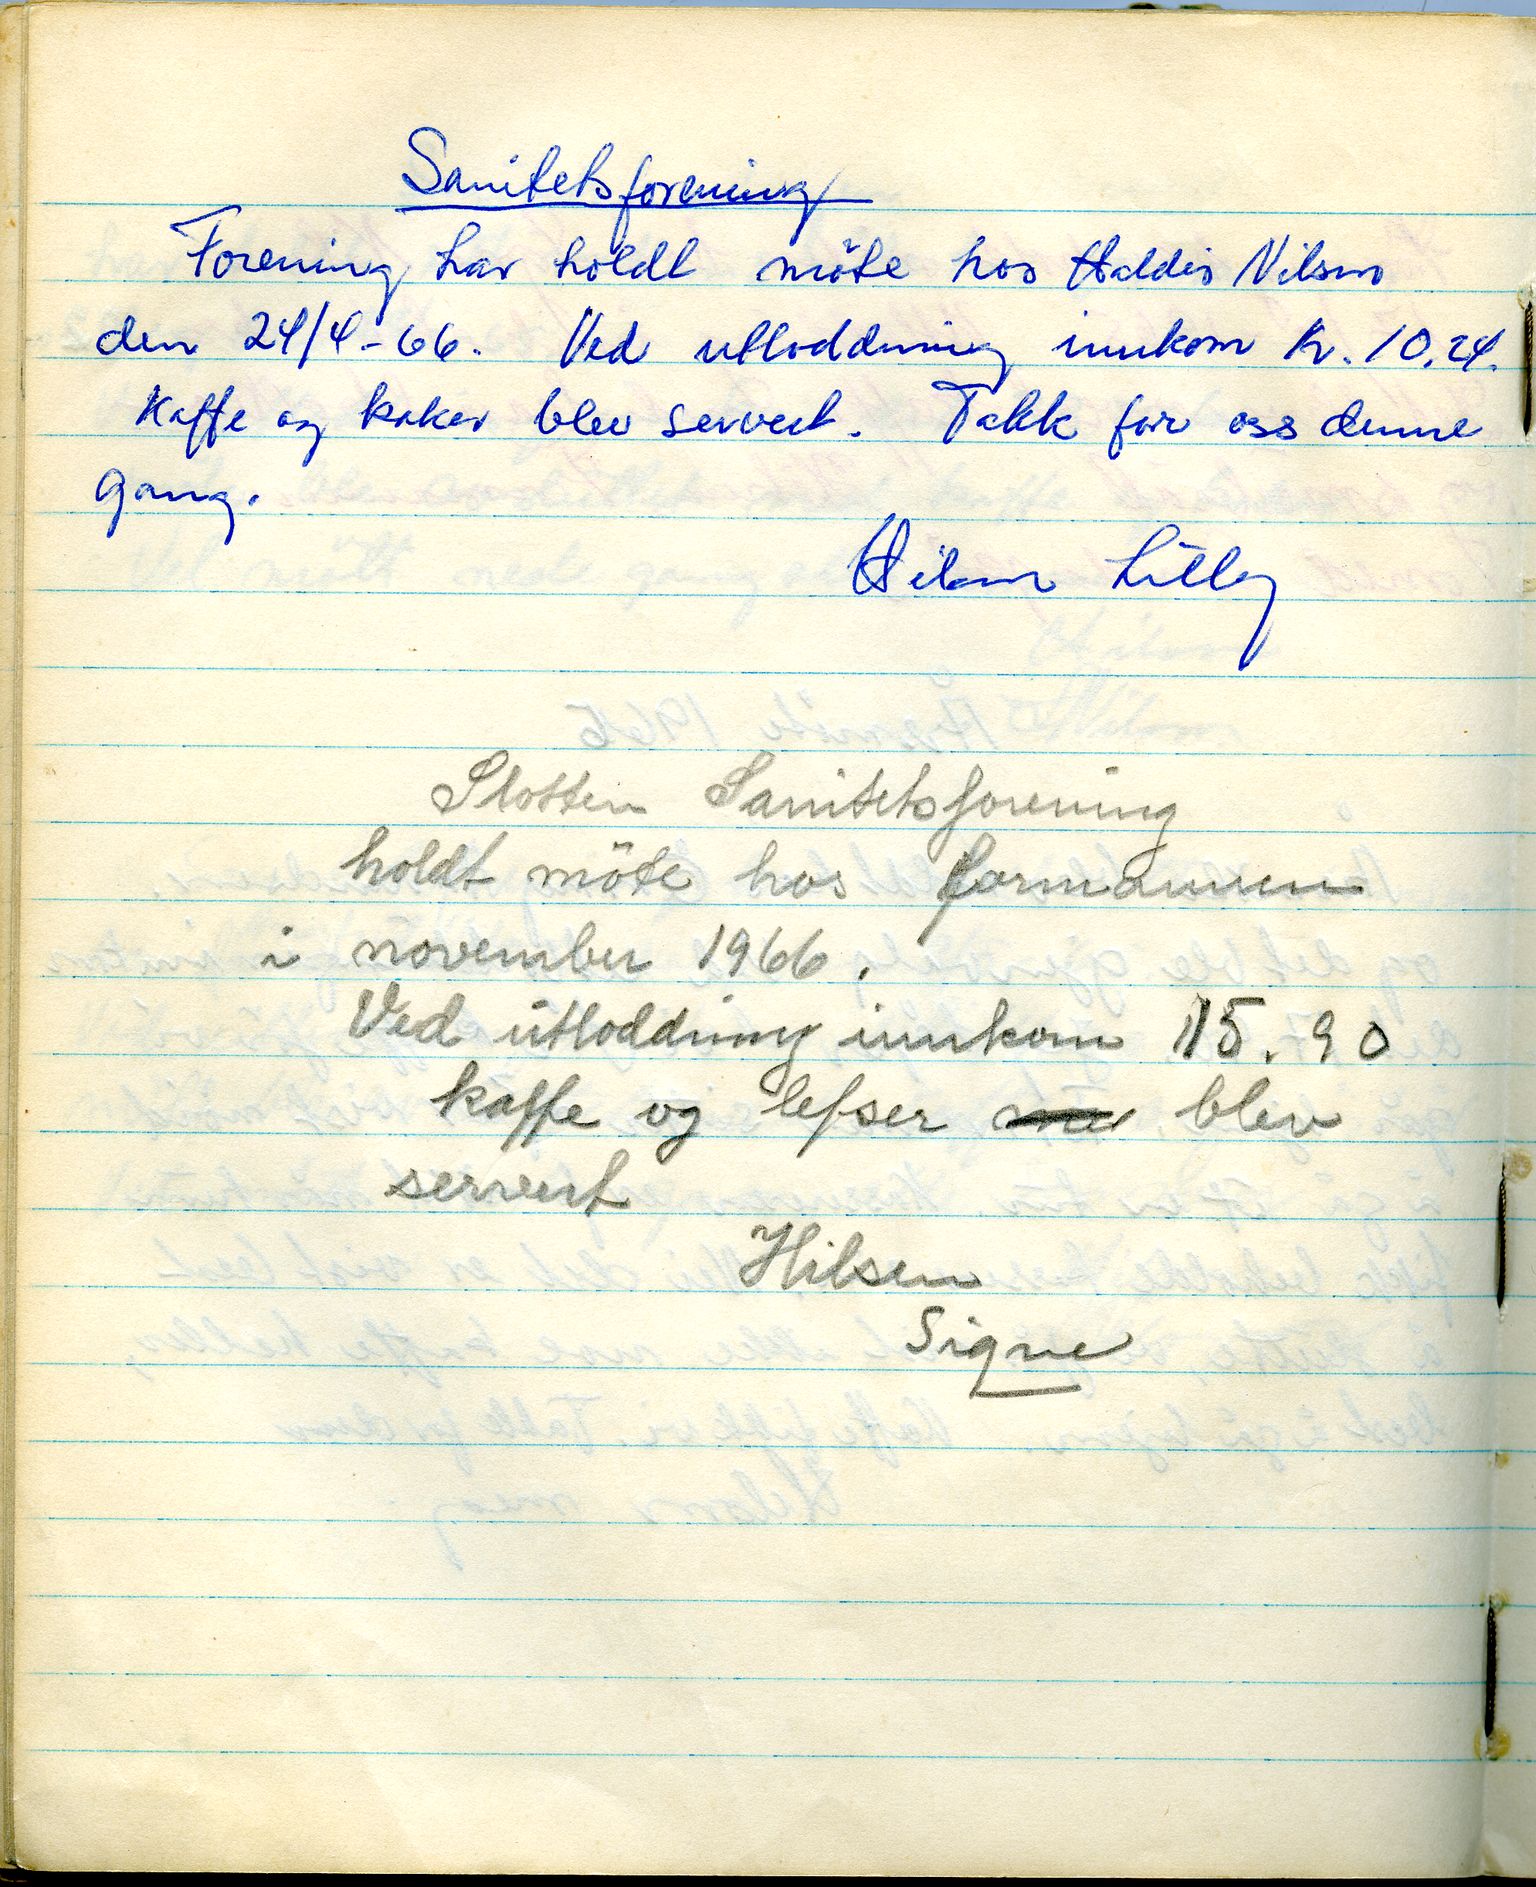 Sanitetsforening
Forening har holdt möte hos Haldis Nilsen
den 24/4-66. Ved utloddning innkom kr. 10,24.
Kaffe og kaker blev servert. Takk for oss denne
gang.
Hilsen Lilly
Slotten Sanitetsforening
holdt möte hos formannen
i november 1966.
Ved utloddning innkom 15.90
kaffe og lefser blev
servert
Hilsen
Signe